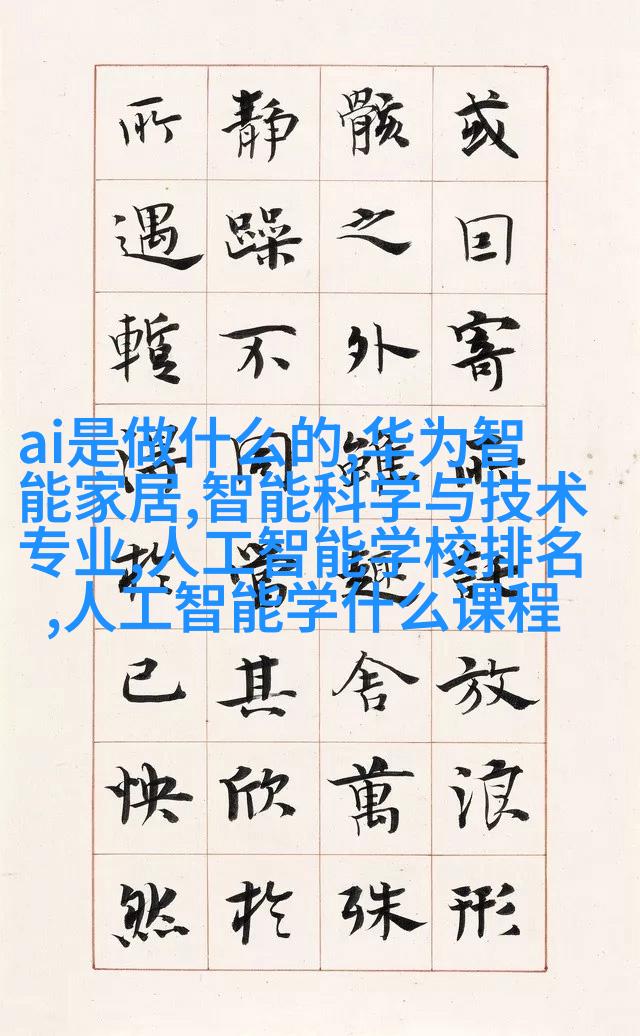 或因寄所託放浪形
骸之外雖趣舍萬殊
靜躁不同當其欣於
所遇暫得於己怏然
ai是做什么的,华为智
能家居,智能科学与技术
专业,人工智能学校排名
,人工智能学什么课程